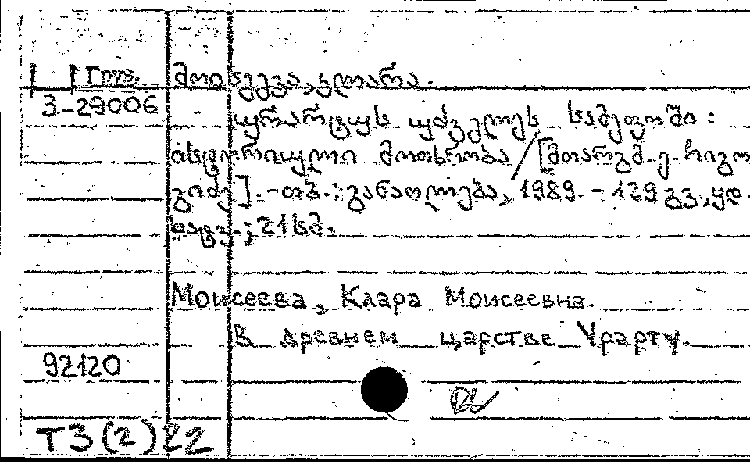 Груз. მოისეევა, კლარა.
3-29006
ურარტუს უძველეს სამეფოში :
ისტორიული მოთხრობა / [მთარგმ. ე. ჩიგო
გიძე]. - თბ. : განათლება, 1989. - 129 გვ., ყდ.
; 21 სმ.
Моисеева, Клара Моисеевна.
В древнем царстве Урарту.
92120
Т3(2)22